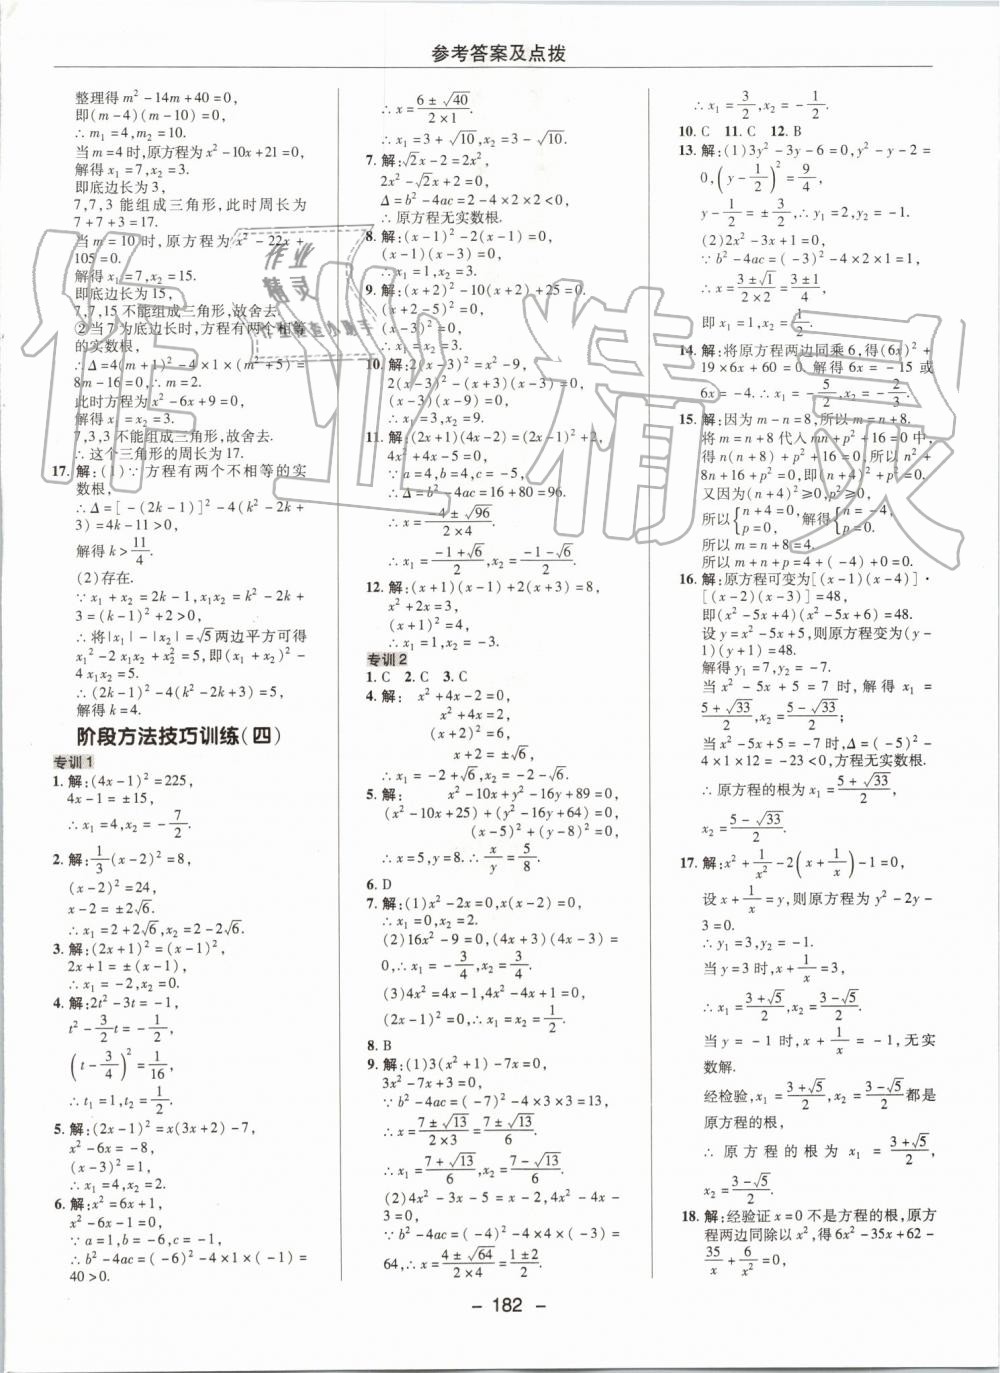 参考答案及点拨
整理得m²-14m+40=0,
即(m-4)(m-10)=0,
∴m₁=4,m₂=10.
当m=4时,原方程为x²-10x+21=0,
解得x₁=7,x₂=3.
即底边长为3,
7,7,3能组成三角形,此时周长为
7+7+3=17.
当m=10时,原方程为x²-22x+
105=0.
解得x₁=7,x₂=15.
即底边长为15,
7,7,15不能组成三角形,故舍去.
②当7为底边长时,方程有两个相等
的实数根,
∴Δ=4(m+1)²-4×1×(m²+5)=
8m-16=0,∴m=2.
此时方程为x²-6x+9=0,
解得x₁=x₂=3.
7,3,3不能组成三角形,故舍去.
∴这个三角形的周长为17.
17.解:(1)∵方程有两个不相等的实
数根,
∴Δ=[-(2k-1)]²-4(k²-2k+
3)=4k-11>0,
解得k>11/4.
(2)存在.
∵x₁+x₂=2k-1,x₁x₂=k²-2k+
3=(k-1)²+2>0,
∴将|x₁|-|x₂|=√5两边平方可得
x₁²-2x₁x₂+x₂²=5,即(x₁+x₂)²-
4x₁x₂=5.
∴(2k-1)²-4(k²-2k+3)=5,
解得k=4.
阶段方法技巧训练(四)
专训1
1.解:(4x-1)²=225,
4x-1=±15,
∴x₁=4,x₂=-7/2.
2.解:1/3(x-2)²=8,
(x-2)²=24,
x-2=±2√6,
∴x₁=2+2√6,x₂=2-2√6.
3.解:(2x+1)²=(x-1)²,
2x+1=±(x-1),
∴x₁=-2,x₂=0.
4.解:2t²-3t=-1,
t²-3/2t=-1/2,
(t-3/4)²=1/16,
∴t₁=1,t₂=1/2.
5.解:(2x-1)²=x(3x+2)-7,
x²-6x=-8,
(x-3)²=1,
∴x₁=4,x₂=2.
6.解:x²=6x+1,
x²-6x-1=0,
∵a=1,b=-6,c=-1,
∴b²-4ac=(-6)²-4×1×(-1)=
40>0.
∴x=(6±√40)/(2×1).
∴x₁=3+√10,x₂=3-√10.
7.解:√2x-2=2x²,
2x²-√2x+2=0,
Δ=b²-4ac=2-4×2×2<0,
∴原方程无实数根.
8.解:(x-1)²-2(x-1)=0,
(x-1)(x-3)=0,
∴x₁=1,x₂=3.
9.解:(x+2)²-10(x+2)+25=0.
(x-3)²=0,
∴x₁=x₂=3.
10.解:2(x-3)²=x²-9,
2(x-3)²-(x+3)(x-3)=0,
(x-3)(x-9)=0.
∴x₁=3,x₂=9.
11.解:(2x+1)(4x-2)=(2x-1)²+2,
4x²+4x-5=0,
∵a=4,b=4,c=-5,
∴Δ=b²-4ac=16+80=96.
∴x=(-4±√96)/(2×4).
∴x₁=(-1+√6)/2,x₂=(-1-√6)/2.
12.解:(x+1)(x-1)+2(x+3)=8,
x²+2x=3,
(x+1)²=4,
∴x₁=1,x₂=-3.
专训2
1.C 2.C 3.C
4.解: x²+4x-2=0,
x²+4x=2,
(x+2)²=6,
x+2=±√6,
∴x₁=-2+√6,x₂=-2-√6.
5.解: x²-10x+y²-16y+89=0,
(x²-10x+25)+(y²-16y+64)=0,
(x-5)²+(y-8)²=0,
∴x=5,y=8.∴x/y=5/8.
6.D
7.解:(1)x²-2x=0,x(x-2)=0,
∴x₁=0,x₂=2.
(2)16x²-9=0,(4x+3)(4x-3)=
0,∴x₁=-3/4,x₂=3/4.
(3)4x²=4x-1,4x²-4x+1=0,
(2x-1)²=0,∴x₁=x₂=1/2.
8.B
9.解:(1)3(x²+1)-7x=0,
3x²-7x+3=0,
∵b²-4ac=(-7)²-4×3×3=13,
∴x=(7±√13)/(2×3)=(7±√13)/6.
∴x₁=(7+√13)/6,x₂=(7-√13)/6.
(2)4x²-3x-5=x-2,4x²-4x-
3=0,
∵b²-4ac=(-4)²-4×4×(-3)=
64,∴x=(4±√64)/(2×4)=(1±2)/2.
∴x₁=3/2,x₂=-1/2.
10.C 11.C 12.B
13.解:(1)3y²-3y-6=0,y²-y-2=
0,(y-1/2)²=9/4,
y-1/2=±3/2,∴y₁=2,y₂=-1.
(2)2x²-3x+1=0,
∵b²-4ac=(-3)²-4×2×1=1,
∴x=(3±√1)/(2×2)=(3±1)/4,
即x₁=1,x₂=1/2.
14.解:将原方程两边同乘6,得(6x)²+
19×6x+60=0.解得6x=-15或
6x=-4.∴x₁=-5/2,x₂=-2/3.
15.解:因为m-n=8,所以m=n+8.
将m=n+8代入mn+p²+16=0中,
得n(n+8)+p²+16=0,所以n²+
8n+16+p²=0,即(n+4)²+p²=0.
又因为(n+4)²≥0,p²≥0,
所以{n+4=0,p=0,解得{n=-4,p=0.
所以m=n+8=4,
所以m+n+p=4+(-4)+0=0.
16.解:原方程可变为[(x-1)(x-4)]·
[(x-2)(x-3)]=48,
即(x²-5x+4)(x²-5x+6)=48.
设y=x²-5x+5,则原方程变为(y-
1)(y+1)=48.
解得y₁=7,y₂=-7.
当x²-5x+5=7时,解得x₁=
(5+√33)/2,x₂=(5-√33)/2;
当x²-5x+5=-7时,Δ=(-5)²-
4×1×12=-23<0,方程无实数根.
∴原方程的根为x₁=(5+√33)/2,
x₂=(5-√33)/2.
17.解:x²+1/x²-2(x+1/x)-1=0,
设x+1/x=y,则原方程为y²-2y-
3=0.
∴y₁=3,y₂=-1.
当y=3时,x+1/x=3,
∴x₁=(3+√5)/2,x₂=(3-√5)/2.
当y=-1时,x+1/x=-1,无实
数解.
经检验,x₁=(3+√5)/2,x₂=(3-√5)/2都是
原方程的根,
∴原方程的根为x₁=(3+√5)/2,
x₂=(3-√5)/2.
18.解:经验证x=0不是方程的根,原方
程两边同除以x²,得6x²-35x+62-
35/x+6/x²=0,
- 182 -
作业精灵
作业
精灵